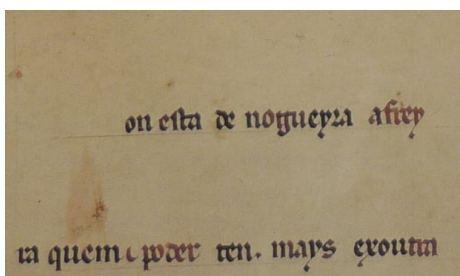 on esta de nogueyra a frey
ra quem e poder ten. mays exoutra